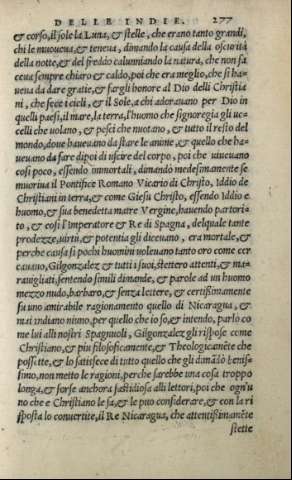 DELLE INDIE. 277
& corso, il sole la Luna, & stelle, che erano tanto grandi,
chi le moueua, & teneua, dimando la causa della oscurità
della notte, & del freddo calunniando la natura, che non fa
ceua sempre chiaro & caldo, poi che era meglio, che si ha-
ueua da dare gratie, & fargli honore al Dio delli Christia
ni, che fece i cieli, & il Sole, a chi adorauano per Dio in
quelli paesi, il mare, la terra, l'huomo che signoregia gli uc-
celli che uolano, & pesci che nuotano, & tutto il resto del
mondo, doue haueuano da stare le anime, & quello che ha-
ueuano da fare dipoi di uscire del corpo, poi che uiueuano
cosi poco, essendo immortali, dimando medesimamente se
muoriua il Pontifice Romano Vicario di Christo, Iddio de
Christiani in terra, & come Giesu Christo, essendo Iddio e
huomo, & sua benedetta madre Vergine, hauendo partori-
to, & cosi l'Imperatore & Re di Spagna, delquale tante
prodezze, uirtù, & potentia gli diceuano, era mortale, &
perche causa si pochi huomini uoleuano tanto oro come cer
cauano, Gilgonzalez & tutti i suoi, stettero attenti, & ma-
rauigliati, sentendo simili dimande, & parole ad un huomo
mezzo nudo, barbaro, & senza lettere, & certissimamente
fu uno amirabile ragionamento quello di Nicaragua, &
mai indiano nismo, per quello che io so, & intendo, parlo co
me lui alli nostri Spagnuoli, Gilgonzalez gli rispose come
Christiano, & piu filosoficamente, & Theologicamẽte che
possette, & lo satisfece di tutto quello che gli damãdò benis-
simo, non metto le ragioni, perche sarebbe una cosa troppo
longa, & forse anchora fastidiosa alli lettori, poi che ogn'u
no che e Christiano le sa, & le puo considerare, & con la ri
sposta lo conuertite, il Re Nicaragua, che attentissimamẽte
stette